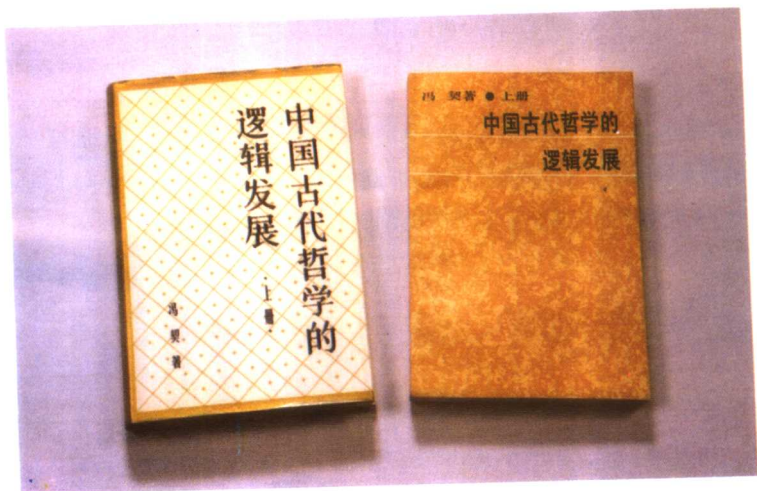 中国古代哲学的
逻辑发展
·上册·
冯契著
冯 契著 ● 上册
中国古代哲学的
逻辑发展